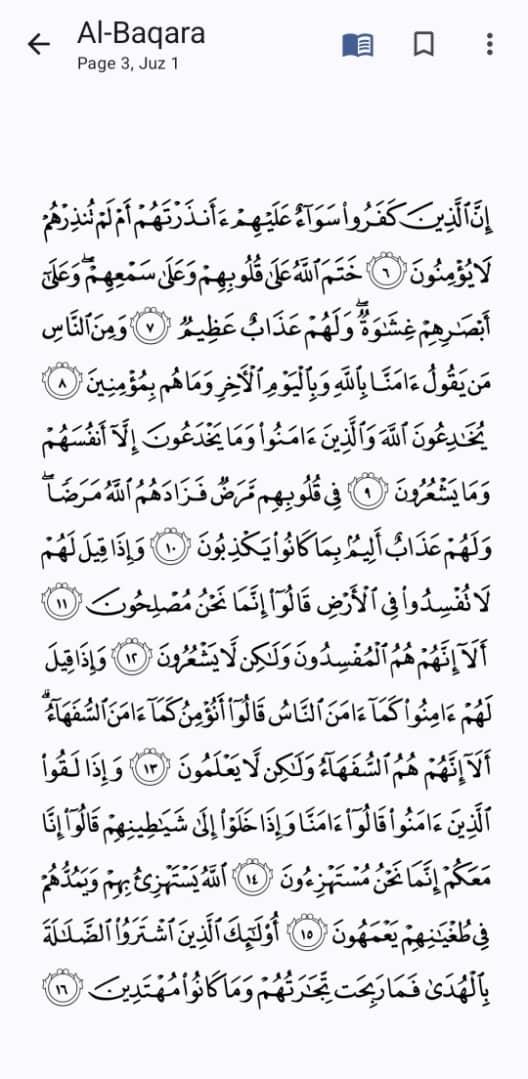 Al-Baqara
Page 3, Juz 1
إِنَّ ٱلَّذِينَ كَفَرُوا۟ سَوَآءٌ عَلَيْهِمْ ءَأَنذَرْتَهُمْ أَمْ لَمْ تُنذِرْهُمْ
لَا يُؤْمِنُونَ ٦ خَتَمَ ٱللَّهُ عَلَىٰ قُلُوبِهِمْ وَعَلَىٰ سَمْعِهِمْ ۖ وَعَلَىٰٓ
أَبْصَـٰرِهِمْ غِشَـٰوَةٌ ۖ وَلَهُمْ عَذَابٌ عَظِيمٌ ٧ وَمِنَ ٱلنَّاسِ
مَن يَقُولُ ءَامَنَّا بِٱللَّهِ وَبِٱلْيَوْمِ ٱلْـَٔاخِرِ وَمَا هُم بِمُؤْمِنِينَ ٨
يُخَـٰدِعُونَ ٱللَّهَ وَٱلَّذِينَ ءَامَنُوا۟ وَمَا يَخْدَعُونَ إِلَّآ أَنفُسَهُمْ
وَمَا يَشْعُرُونَ ٩ فِى قُلُوبِهِم مَّرَضٌ فَزَادَهُمُ ٱللَّهُ مَرَضًا ۖ
وَلَهُمْ عَذَابٌ أَلِيمٌۢ بِمَا كَانُوا۟ يَكْذِبُونَ ١٠ وَإِذَا قِيلَ لَهُمْ
لَا تُفْسِدُوا۟ فِى ٱلْأَرْضِ قَالُوٓا۟ إِنَّمَا نَحْنُ مُصْلِحُونَ ١١
أَلَآ إِنَّهُمْ هُمُ ٱلْمُفْسِدُونَ وَلَـٰكِن لَّا يَشْعُرُونَ ١٢ وَإِذَا قِيلَ
لَهُمْ ءَامِنُوا۟ كَمَآ ءَامَنَ ٱلنَّاسُ قَالُوٓا۟ أَنُؤْمِنُ كَمَآ ءَامَنَ ٱلسُّفَهَآءُ ۗ
أَلَآ إِنَّهُمْ هُمُ ٱلسُّفَهَآءُ وَلَـٰكِن لَّا يَعْلَمُونَ ١٣ وَإِذَا لَقُوا۟
ٱلَّذِينَ ءَامَنُوا۟ قَالُوٓا۟ ءَامَنَّا وَإِذَا خَلَوْا۟ إِلَىٰ شَيَـٰطِينِهِمْ قَالُوٓا۟ إِنَّا
مَعَكُمْ إِنَّمَا نَحْنُ مُسْتَهْزِءُونَ ١٤ ٱللَّهُ يَسْتَهْزِئُ بِهِمْ وَيَمُدُّهُمْ
فِى طُغْيَـٰنِهِمْ يَعْمَهُونَ ١٥ أُو۟لَـٰٓئِكَ ٱلَّذِينَ ٱشْتَرَوُا۟ ٱلضَّلَـٰلَةَ
بِٱلْهُدَىٰ فَمَا رَبِحَت تِّجَـٰرَتُهُمْ وَمَا كَانُوا۟ مُهْتَدِينَ ١٦